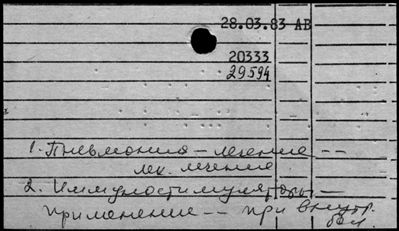 28.03.83 АВ
20333
29594
1. Пневмония – лечение --
лек. лечение
2. Иммуностимуляторы –
применение -- при внутр.
бол.